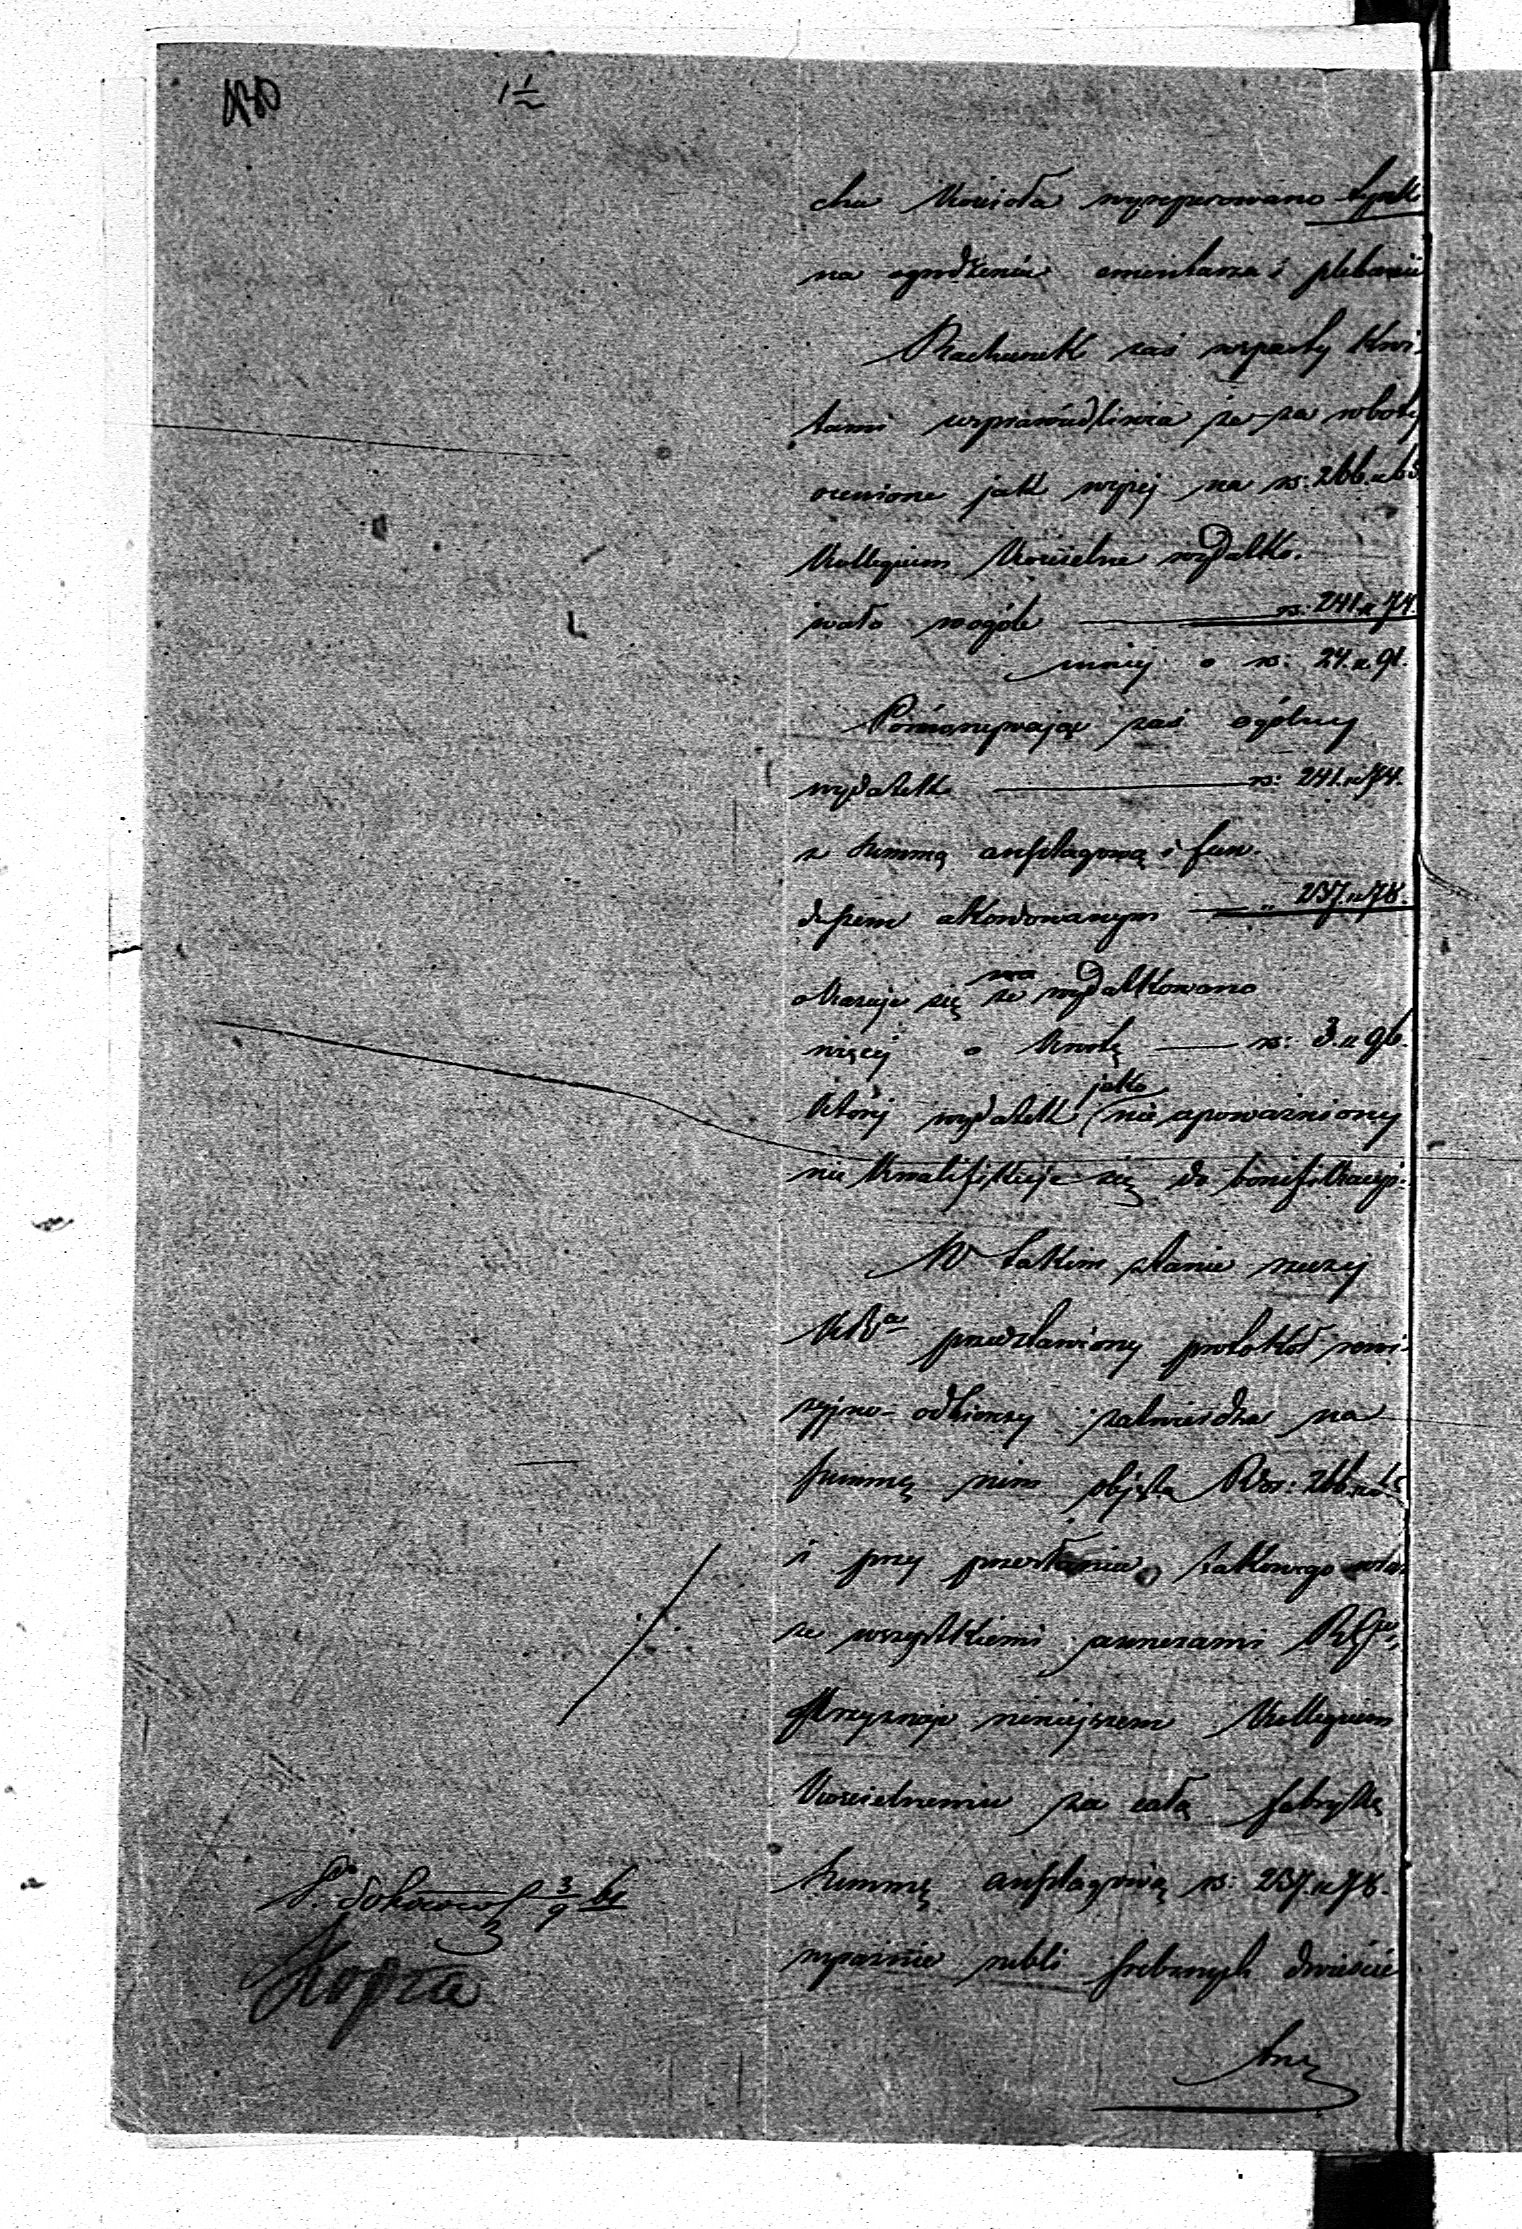 1 1/2
cha Kościoła wyreperowano tynk
na ogrodzeniu cmentarza i plebanii
Rachunek zaś wsparty kwi-
tami usprawiedliwia że za roboty
ocenione jak wyżej na rs: 266. k 65
Kollegium Kościelne wydatko-
wało wogóle rs: 241. k 74.
mniej o rs: 24. k 91.
Porównywając zaś ogólny
wydatek rs: 241. k 74.
z summą anszlagową i fun-
duszem akordowanym " 237. k 78.
okazuje się że wydatkowano
więcej o kwotę rs: 3. k 96.
który wydatek jako nie upoważniony
nie kwalifikuje się do bonifikacyi.
W takim stanie rzeczy
przedstawiony protokół rewi-
zyjno-odbiorczy zatwierdza na
summę nim objętą Rsr: 266. k 65
i przy przesłaniu takowego
ze wszystkiemi annexami
Przyznaje niniejszem Kollegium
Kościelnemu za całą fabrykę
Summę anszlagową rs: 237. k 78.
wyraźnie rubli srebrnych dwieście
3/9
Kopia
trzy